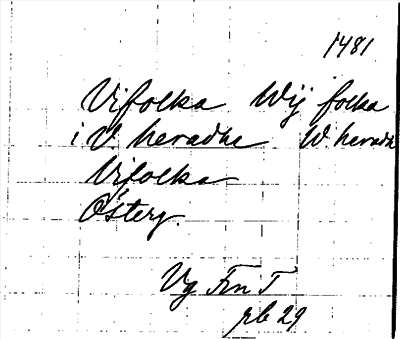 1481
Vifolka Wij folka
i V heradhe W heradh
Vifolka
Österg.
Vg Fn T
sp 29